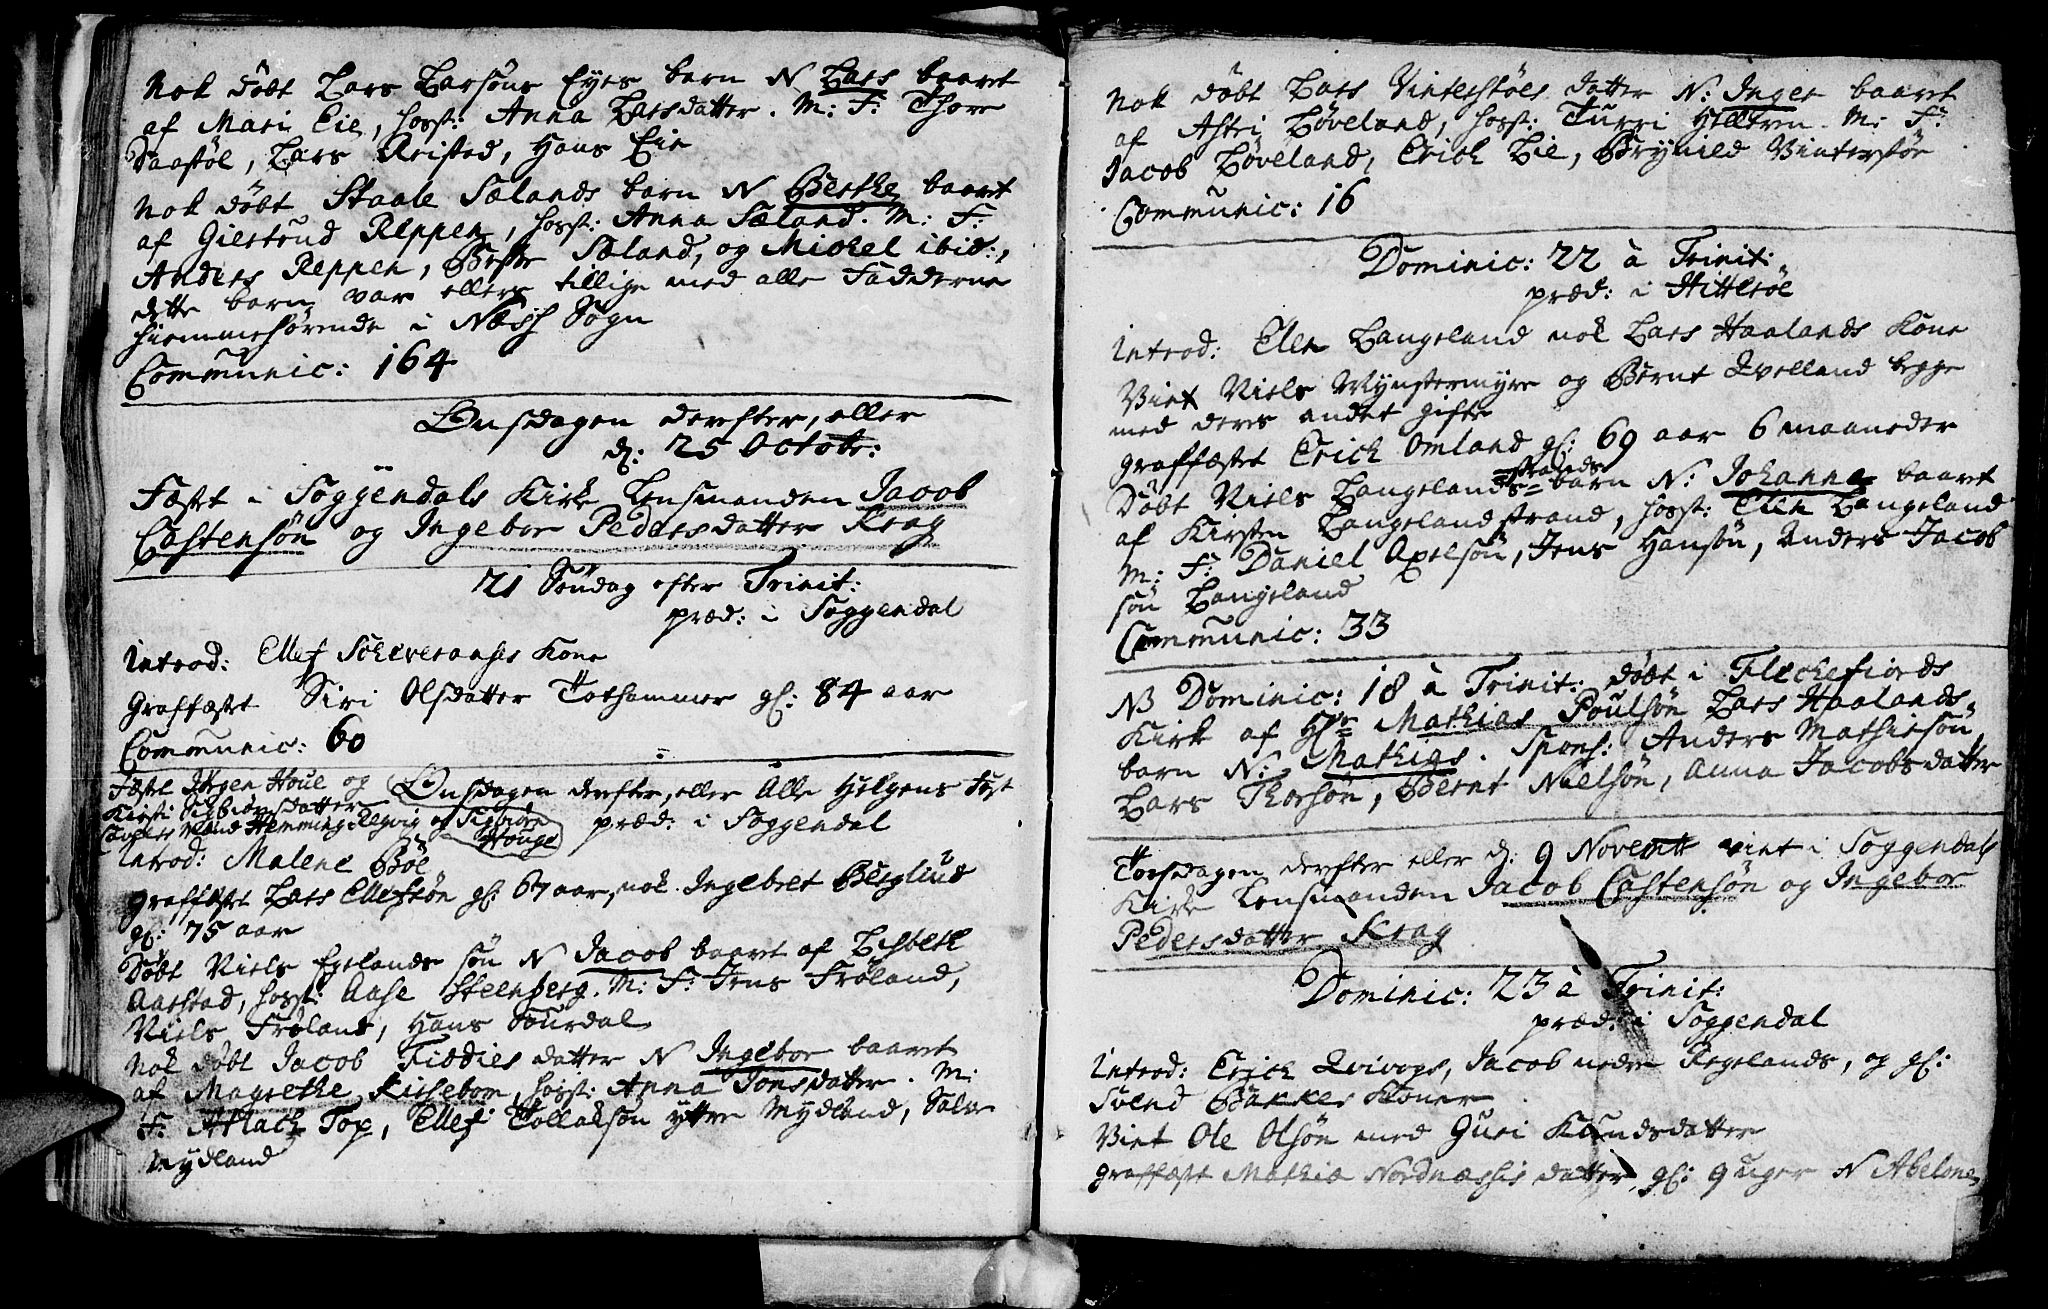 Nok döbt Lars Larsöns Eyes barn N Lars baaret
af Mari Eie, hosst: Anna Larsdatter. M: F: Thore
Daastöl, Lars Reistad, Hans Eie
Nok döbt Staale Sælands barn N Berthe baaret
af Giertrud Reppen, hosst: Anna Sæland. M: F:
Anders Reppen, Sæland, og Michel ibid:,
dette barn var ellers tillige med alle Fadderne
hiemmehörende i Næss Sogn
Communic: 164
Onsdagen derefter, eller
d: 25 Octobr:
Fæstet i Soggendals Kirke Lensmanden Jacob
Castensön og Ingebor Pedersdatter Krag
21 Söndag efter Trinit:
præd: i Soggendal
Introd: Ellef Kone
Graffæstet Siri Olsdatter Tothammer gl: 84 aar
Communic: 60
Fæstet Jörgen Houe og
Kirsti Sigbiörnsdatter
Cavgers Mænd Hemming Regvig og Sigbiörn
Houge
Onsdagen derefter, eller Alle Helgens Fest
præd: i Soggendal
Introd: Malene Böe
graffæstet Lars Ellefsön gl: 67 aar, nok Ingebret Berglius
gl: 75 aar
Döbt Niels Egelands sön N Jacob baaret af Lisbeth
Aarstad, hosst: Aase Steenberg. M: F: Jens Fröland,
Niels Fröland, Hans Suurdal
Nok döbt Jacob Fiddies datter N Ingebor baaret
af Magrethe Kirsebom, hosst: Anna Jonsdatter. M:
F: Atlach Top, Ellef Tollaksön ytre Mydland, Salve
Mydland
Nok döbt Lars Vinterstöes datter N: Inger baaret
af Astri Löveland, hosst: Turri Hilltren. M: F:
Jacob Löveland, Erich Lie, Brynild Vinterstöe
Communic: 16
Dominic: 22 à Trinit:
præd: i Hitteröe
Introd: Elen Langeland nok Lars Haalands Kone
Viet Niels Mynstermyre og Bernt Qvelland begge
med deres andet gifte
graffæstet Erich Omland gl: 69 aar 6 maaneder
Döbt Niels Langelandsstrands barn N: Johanna baaret
af Kirsten Langelandstrand, hosst: Elen Langeland
M: F: Daniel Axelsön, Jens Hansön, Anders Jacob
sön Langeland
Communic: 33
NB Dominic: 18 à Trinit: döbt i Fleckefiords
Kirk af Hr Mathias Poulsön Lars Haalands
barn N: Mathias. Spons: Anders Mathiesön,
Lars Thorsön, Bernt Nielsön, Anna Jacobsdatter
Torsdagen derefter eller d: 9 Novemb viet i Soggendals
Kirke Lensmanden Jacob Castensön og Ingebor
Pedersdatter Krag
Dominic: 23 à Trinit:
præd: i Soggendal
Introd: Erich Qvivogs, Jacob nedre Regelands, og gl:
Svend Bakkes Koner
Viet Ole Olsön med Guri Knudsdatter
graffæstet Mathia Nordnæssis datter, gl: 9 uger N Abelone